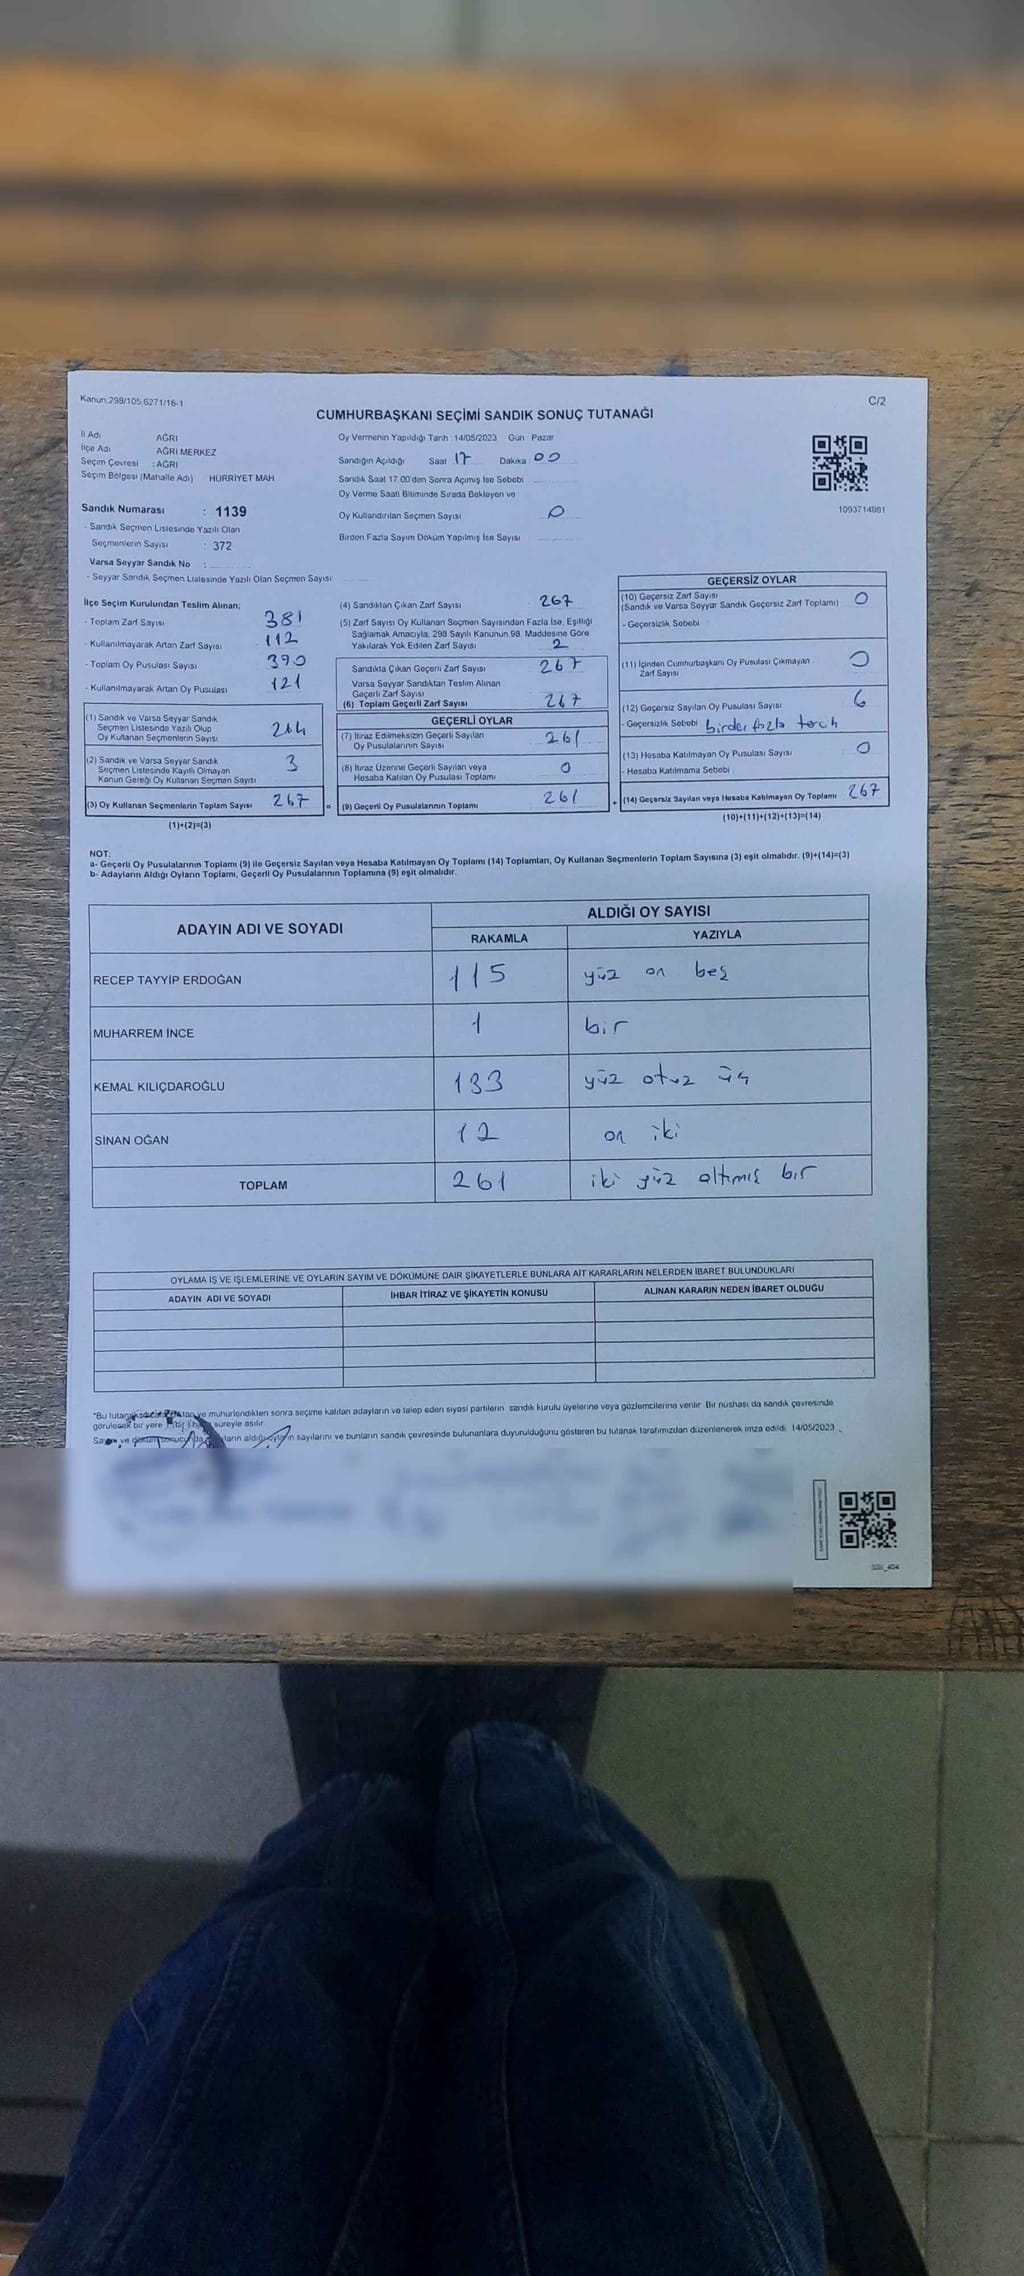 Kanun 298/105,6271/16-1
C/2
CUMHURBAŞKANI SEÇİMİ SANDIK SONUÇ TUTANAĞI
İl Adı AĞRI
İlçe Adı AĞRI MERKEZ
Seçim Çevresi : AĞRI
Seçim Bölgesi (Mahalle Adı) HÜRRİYET MAH
Sandık Numarası : 1139
- Sandık Seçmen Listesinde Yazılı Olan
Seçmenlerin Sayısı : 372
Varsa Seyyar Sandık No :
- Seyyar Sandık Seçmen Listesinde Yazılı Olan Seçmen Sayısı
Oy Vermenin Yapıldığı Tarih : 14/05/2023 Gün Pazar
Sandığın Açıldığı Saat 17 Dakika 00
Sandık Saat 17.00'den Sonra Açılmış İse Sebebi
Oy Verme Saati Bitiminde Sırada Bekleyen ve
Oy Kullandırılan Seçmen Sayısı 0
Birden Fazla Sayım Döküm Yapılmış İse Sayısı
1093714981
İlçe Seçim Kurulundan Teslim Alınan;
- Toplam Zarf Sayısı 381
- Kullanılmayarak Artan Zarf Sayısı 112
- Toplam Oy Pusulası Sayısı 390
- Kullanılmayarak Artan Oy Pusulası 121
(1) Sandık ve Varsa Seyyar Sandık
Seçmen Listesinde Yazılı Olup
Oy Kullanan Seçmenlerin Sayısı 264
(2) Sandık ve Varsa Seyyar Sandık
Seçmen Listesinde Kayıtlı Olmayan
Kanun Gereği Oy Kullanan Seçmen Sayısı 3
(3) Oy Kullanan Seçmenlerin Toplam Sayısı 267 =
(1)+(2)=(3)
(4) Sandıktan Çıkan Zarf Sayısı 267
(5) Zarf Sayısı Oy Kullanan Seçmen Sayısından Fazla İse, Eşitliği
Sağlamak Amacıyla, 298 Sayılı Kanunun 98. Maddesine Göre
Yakılarak Yok Edilen Zarf Sayısı 2
Sandıkta Çıkan Geçerli Zarf Sayısı 267
Varsa Seyyar Sandıktan Teslim Alınan
Geçerli Zarf Sayısı
(6) Toplam Geçerli Zarf Sayısı 267
GEÇERLİ OYLAR
(7) İtiraz Edilmeksizin Geçerli Sayılan
Oy Pusulalarının Sayısı 261
(8) İtiraz Üzerine Geçerli Sayılan veya
Hesaba Katılan Oy Pusulası Toplamı 0
(9) Geçerli Oy Pusulalarının Toplamı 261 +
GEÇERSİZ OYLAR
(10) Geçersiz Zarf Sayısı 0
(Sandık ve Varsa Seyyar Sandık Geçersiz Zarf Toplamı)
- Geçersizlik Sebebi
(11) İçinden Cumhurbaşkanı Oy Pusulası Çıkmayan
Zarf Sayısı 0
(12) Geçersiz Sayılan Oy Pusulası Sayısı 6
- Geçersizlik Sebebi birden fazla terch
(13) Hesaba Katılmayan Oy Pusulası Sayısı 0
- Hesaba Katılmama Sebebi
(14) Geçersiz Sayılan veya Hesaba Katılmayan Oy Toplamı 267
(10)+(11)+(12)+(13)=(14)
NOT:
a- Geçerli Oy Pusulalarının Toplamı (9) ile Geçersiz Sayılan veya Hesaba Katılmayan Oy Toplamı (14) Toplamları, Oy Kullanan Seçmenlerin Toplam Sayısına (3) eşit olmalıdır. (9)+(14)=(3)
b- Adayların Aldığı Oyların Toplamı, Geçerli Oy Pusulalarının Toplamına (9) eşit olmalıdır.
ADAYIN ADI VE SOYADI
ALDIĞI OY SAYISI
RAKAMLA YAZIYLA
RECEP TAYYİP ERDOĞAN 115 yüz on beş
MUHARREM İNCE 1 bir
KEMAL KILIÇDAROĞLU 133 yüz otuz üç
SİNAN OĞAN 12 on iki
TOPLAM 261 iki yüz altmış bir
OYLAMA İŞ VE İŞLEMLERİNE VE OYLARIN SAYIM VE DÖKÜMÜNE DAİR ŞİKAYETLERLE BUNLARA AİT KARARLARIN NELERDEN İBARET BULUNDUKLARI
ADAYIN ADI VE SOYADI İHBAR İTİRAZ VE ŞİKAYETİN KONUSU ALINAN KARARIN NEDEN İBARET OLDUĞU
*Bu tutanak ve mühürlendikten sonra seçime katılan adayların ve talep eden siyasi partilerin sandık kurulu üyelerine veya gözlemcilerine verilir. Bir nüshası da sandık çevresinde
görülecek bir yere süreyle asılır.
Sayım ve döküm sonucunda aldığı oyların sayılarını ve bunların sandık çevresinde bulunanlara duyurulduğunu gösteren bu tutanak tarafımızdan düzenlenerek imza edildi. 14/05/2023